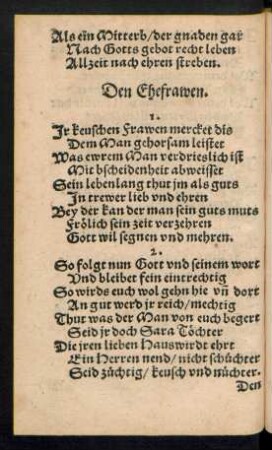 Als ein Mitterb/der gnaden gar
Nach Gotts gebot recht leben
Allzeit nach ehren streben.
Den Ehefrawen.
1.
Jr keuschen Frawen mercket dis
Dem Man gehorsam leistet
Was ewrem Man verdrieslich ist
Mit bscheidenheit abweisset
Sein lebenlang thut jm als guts
Jn trewer lieb vnd ehren
Bey der kan der man sein guts muts
Frölich sein zeit verzehren
Gott wil segnen vnd mehren.
2.
So folgt nun Gott vnd seinem wort
Vnd bleibet fein eintrechtig
So wirds euch wol gehn hie vñ dort
An gut werd jr reich/mechtig
Thut was der Man von euch begert
Seid jr doch Sara Töchter
Die jren lieben Hauswirdt ehrt
Ein Herren nend/nicht schüchter
Seid züchtig/keusch vnd nüchter.
Den